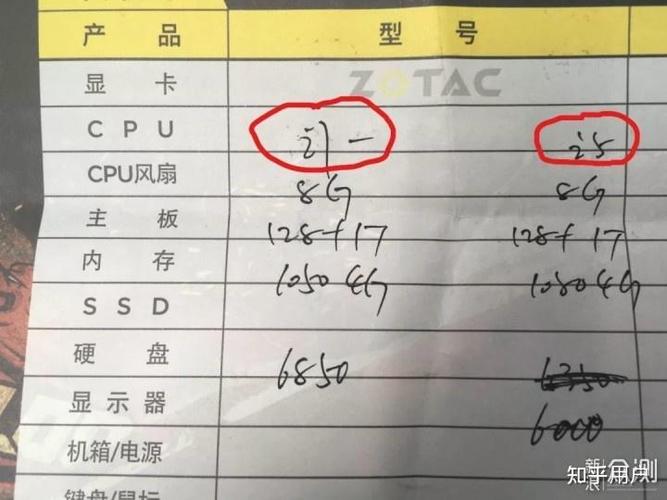 产 品 型 号
显 卡 ZOTAC
C P U i7 一 i5
CPU风扇 8G 8G
主 板 128+1T 128+1T
内 存 1050 4G 1050 4G
S S D
硬 盘 6850
显示器 6000
机箱/电源
键盘/鼠标
知乎用户